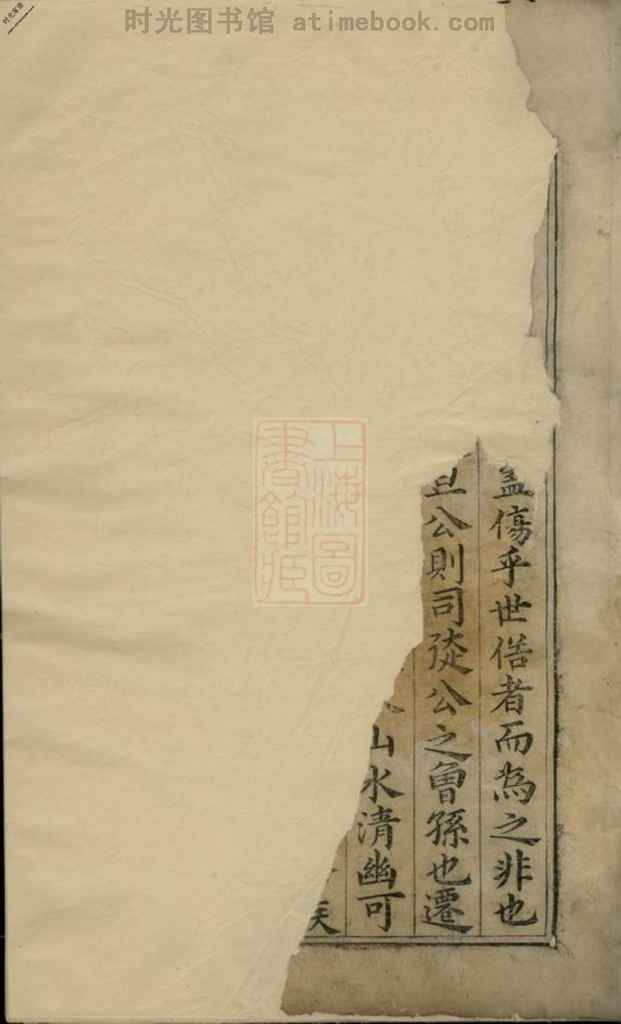 时光图书馆 atimebook.com
盖傷乎世俗者而為之非也
公則司徒公之曾孫也遷
山水清幽可
族
上海圖
書館藏